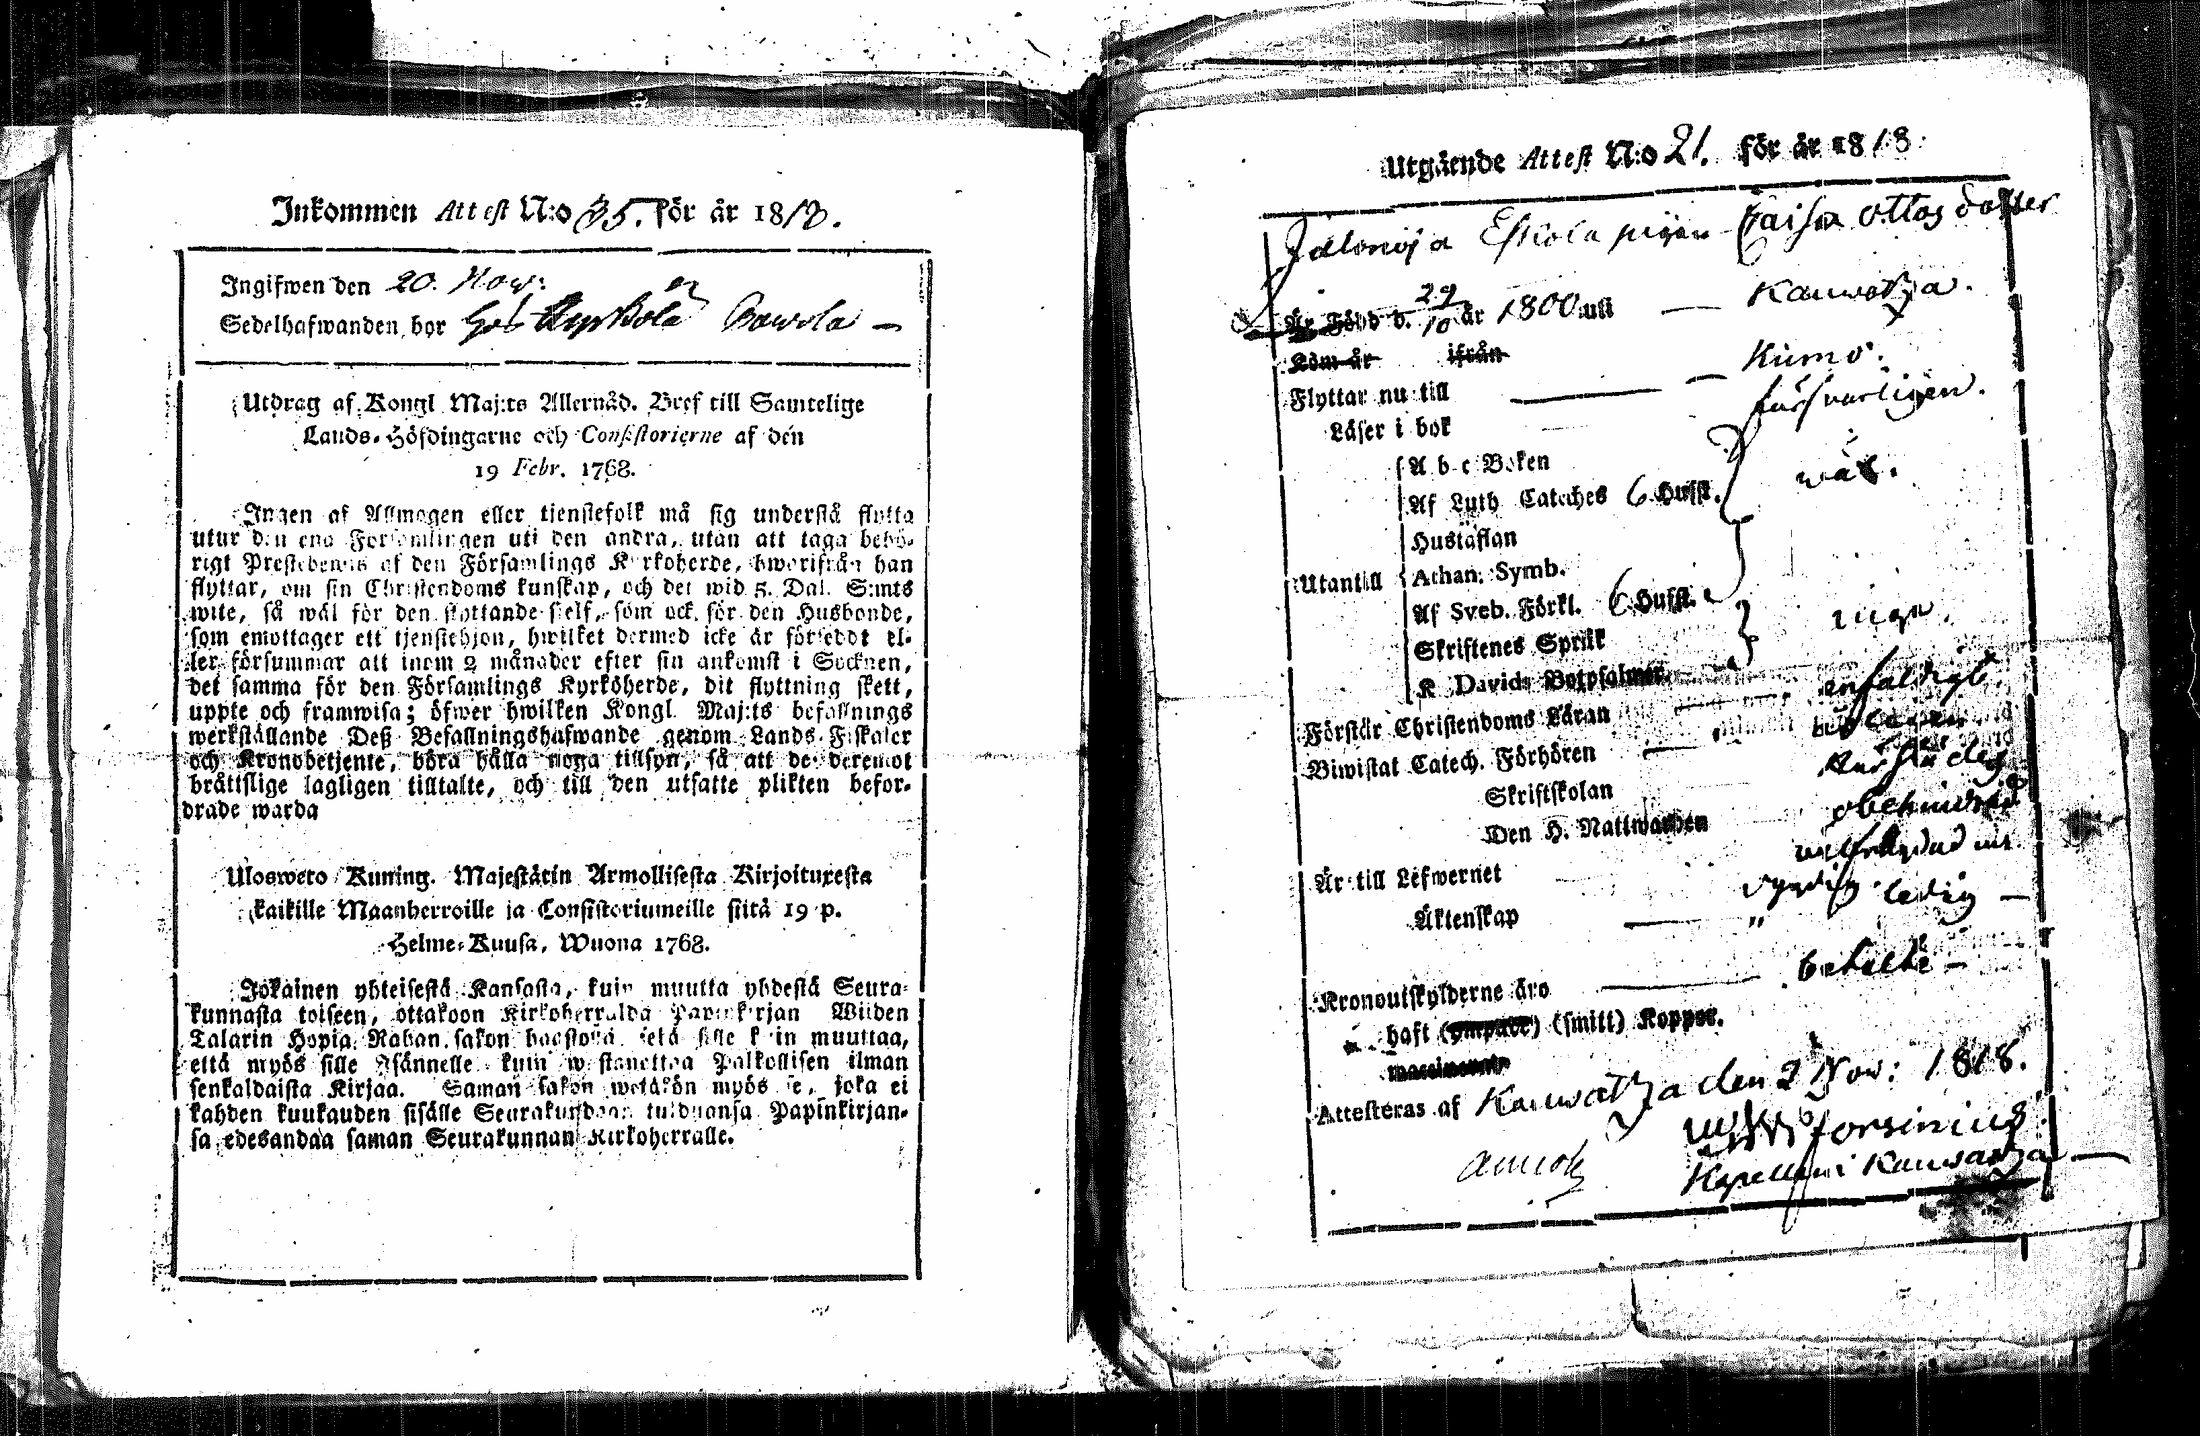 Inkommen Attest N:o 35. för år 1818.
Ingifwen den 20. Nov:
Sedelhafwanden bor hos Kyrkolä Pawola —
Utdrag af Kongl Maj:ts Allernåd. Bref till Samtelige
Lands-Höfdingarne och Consistorierne af den
19 Febr. 1768.
Ingen af Allmogen eller tjenstefolk må sig understå flytta
utur den ena Församlingen uti den andra, utan att taga behö-
rigt Prestebewis af den Församlings Kyrkoherde, hworifrån han
flyttar, om sin Christendoms kunskap, och det wid 5. Dal. S:mts
wite, så wäl för den flyttande sjelf, som ock för den Husbonde,
som emottager ett tjenstehjon, hwilket dermed icke är förseddt el-
ler försummar att inom 2 månader efter sin ankomst i Socknen,
det samma för den Församlings Kyrköherde, dit flyttning skett,
uppte och framwisa; öfwer hwilken Kongl. Maj:ts befallnings
werkställande Deß Befallningshafwande genom Lands-Fiskaler
och Kronobetjente, böra hålla noga tillsyn, så att de deremot
bråttslige lagligen tilltalte, och till den utsatte plikten befor-
drade warda
Uloswero Kuning. Majestätin Armollisesta Kirjoituxesta
kaikille Maanherroille ja Consistoriumeille siitä 19 p.
Helme-Kuusa, Wuona 1768.
Jokainen yhteisestä Kansasta, kuin muutta yhdestä Seura-
kunnasta toiseen, ottakoon Kirkoherralda Papinkirjan Wiiden
Talarin Hopia Rahan sakon haastolla, sekä sille kuin muuttaa,
että myös sille Isännelle kuin wastanottaa Palkollisen ilman
senkaldaista Kirjaa. Saman sakon wetäkön myös se, joka ei
kahden kuukauden sisälle Seurakundaan tulduansa Papinkirjan-
sa edesandaa saman Seurakunnan Kirkoherralle.
Utgående Attest N:o 21. för år 1818.
Jalonoja Eskola pigan Caisa Ottos dotter
Är Född d. 29/10 år 1800 uti — Kauwatza.
Kom år ifrån
Flyttar nu till — Kumo.
Läser i bok försvarligen.
A b c Boken
Af Luth Cateches 6 Hufst. wäl.
Hustaflan
Utantill Athan. Symb.
Af Sveb. Förkl. 6 Hufst.
Skriftenes Språk inga.
K Davids Botpsalmer
Förstår Christendoms Läran enfaldigt.
Biwistat Catech. Förhören
Skriftskolan
Den H. Nattwarden
Är till Lefwernet
Äktenskap — " ledig —
Kronoutskylderne äro — betalte —
haft (ympade) (smitt) Koppor.
vaccinerats
Attesteras af Kauwatza den 2 Nov: 1818.
Forsinius
Kapellan i Kauwatza —